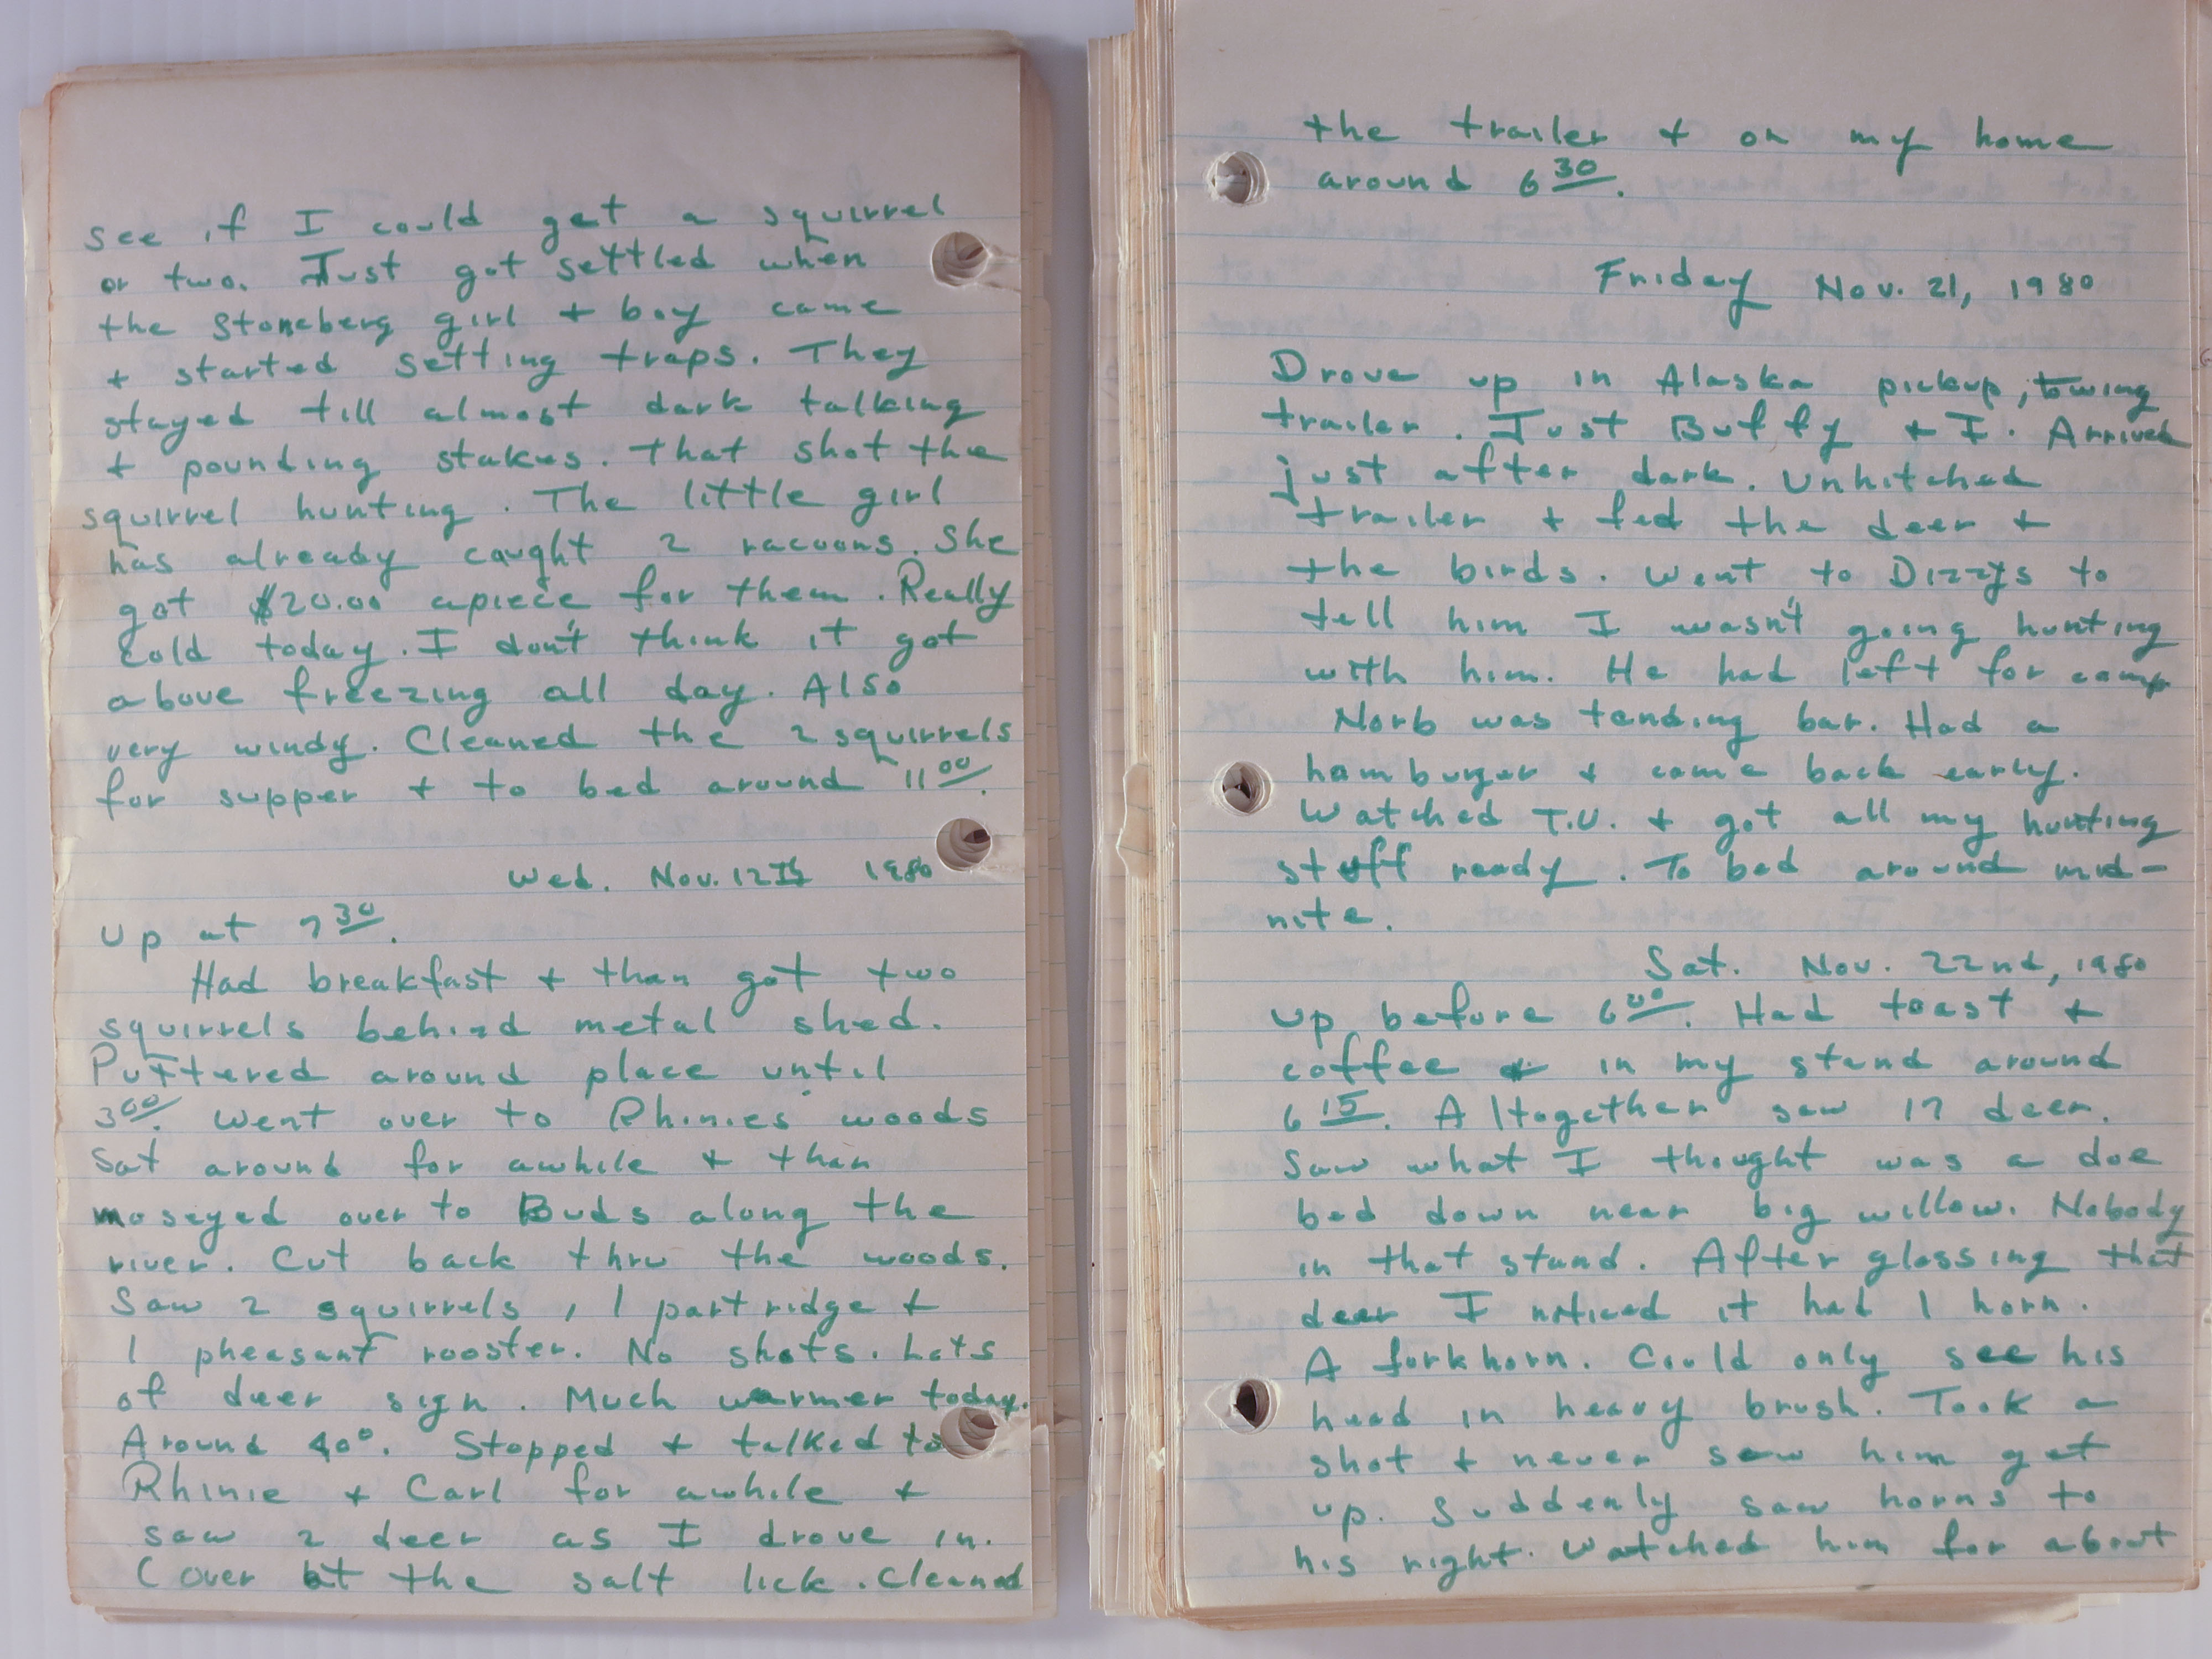 see if I could get a squirrel
or two. Just got settled when
the Stoneberg girl + boy came
+ started setting traps. They
stayed till almost dark talking
+ pounding stakes. That shot the
squirrel hunting. The little girl
has already caught 2 racoons. She
got $20.00 apiece for them. Really
cold today. I don't think it got
above freezing all day. Also
very windy. Cleaned the 2 squirrels
for supper + to bed around 11 00.
Wed. Nov. 12th 1980
Up at 7 30.
Had breakfast + than got two
squirrels behind metal shed.
Puttered around place until
3 00. Went over to Rhinies woods
Sat around for awhile + than
moseyed over to Buds along the
river. Cut back thru the woods.
Saw 2 squirrels, 1 partridge +
1 pheasant rooster. No shots. Lots
of deer sign. Much warmer today.
Around 40°. Stopped + talked to
Rhinie + Carl for awhile +
saw 2 deer as I drove in.
(over at the salt lick. Cleaned
the trailer + on my home
around 6 30.
Friday Nov. 21, 1980
Drove up in Alaska pickup, towing
trailer. Just Buffy + I. Arrived
just after dark. Unhitched
trailer + fed the deer +
the birds. Went to Dizzys to
tell him I wasn't going hunting
with him. He had left for camp
Norb was tending bar. Had a
hamburger + came back early.
Watched T.V. + got all my hunting
stuff ready. To bed around mid-
nite.
Sat. Nov. 22nd, 1980
Up before 6 00. Had toast +
coffee + in my stand around
6 15. Altogether saw 17 deer.
Saw what I thought was a doe
bed down near big willow. Nobody
in that stand. After glassing that
deer I noticed it had 1 horn.
A forkhorn. Could only see his
head in heavy brush. Took a
shot + never saw him get
up. Suddenly saw horns to
his right. Watched him for about